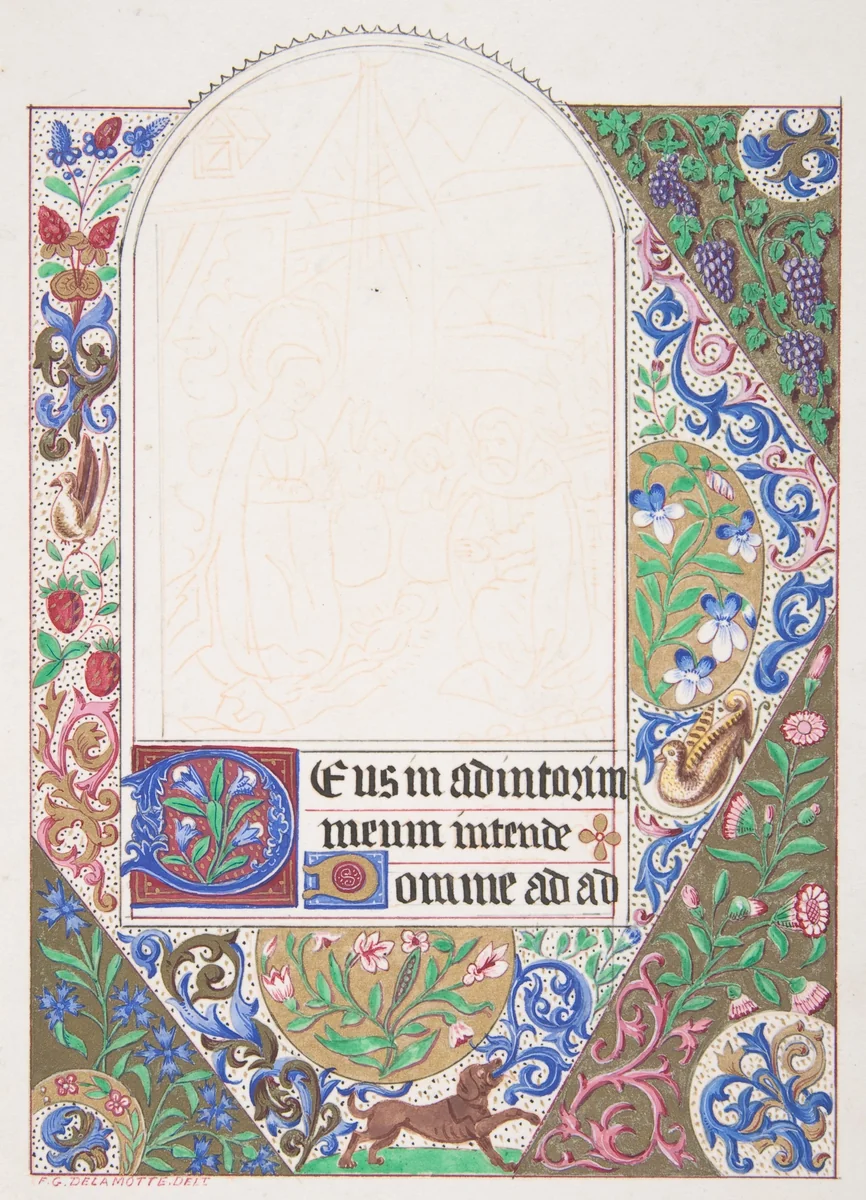 Deus in adintorim
meum intende
Domine ad ad
F.G. DELAMOTTE. DELT